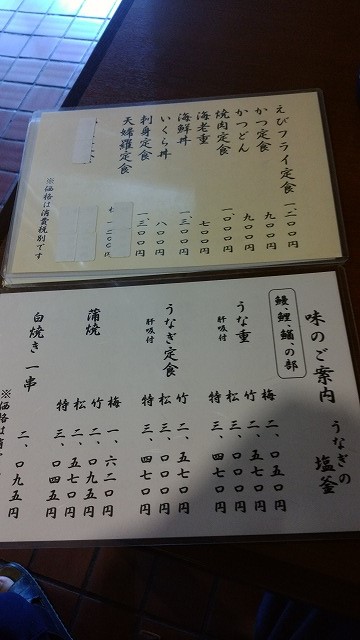 えびフライ定食 一二〇〇円
かつ定食 九〇〇円
かつどん 九〇〇円
焼肉定食 一〇〇〇円
海老重 七〇〇円
海鮮丼 一三〇〇円
いくら丼 八〇〇円
刺身定食 一三〇〇円
天婦羅定食 一二〇〇円
※価格は消費税別です
味のご案内 うなぎの塩釜
鰻、鯉、鰌、の部
うな重 肝吸付
梅 二、〇五〇円
竹 二、五七〇円
松 三、〇〇〇円
特 三、四七〇円
うなぎ定食 肝吸付
竹 二、五七〇円
松 三、〇〇〇円
特 三、四七〇円
蒲焼
梅 一、六二〇円
竹 二、〇九五円
松 二、五七〇円
特 三、〇四五円
白焼き一串 二、〇九五円
※価格は消